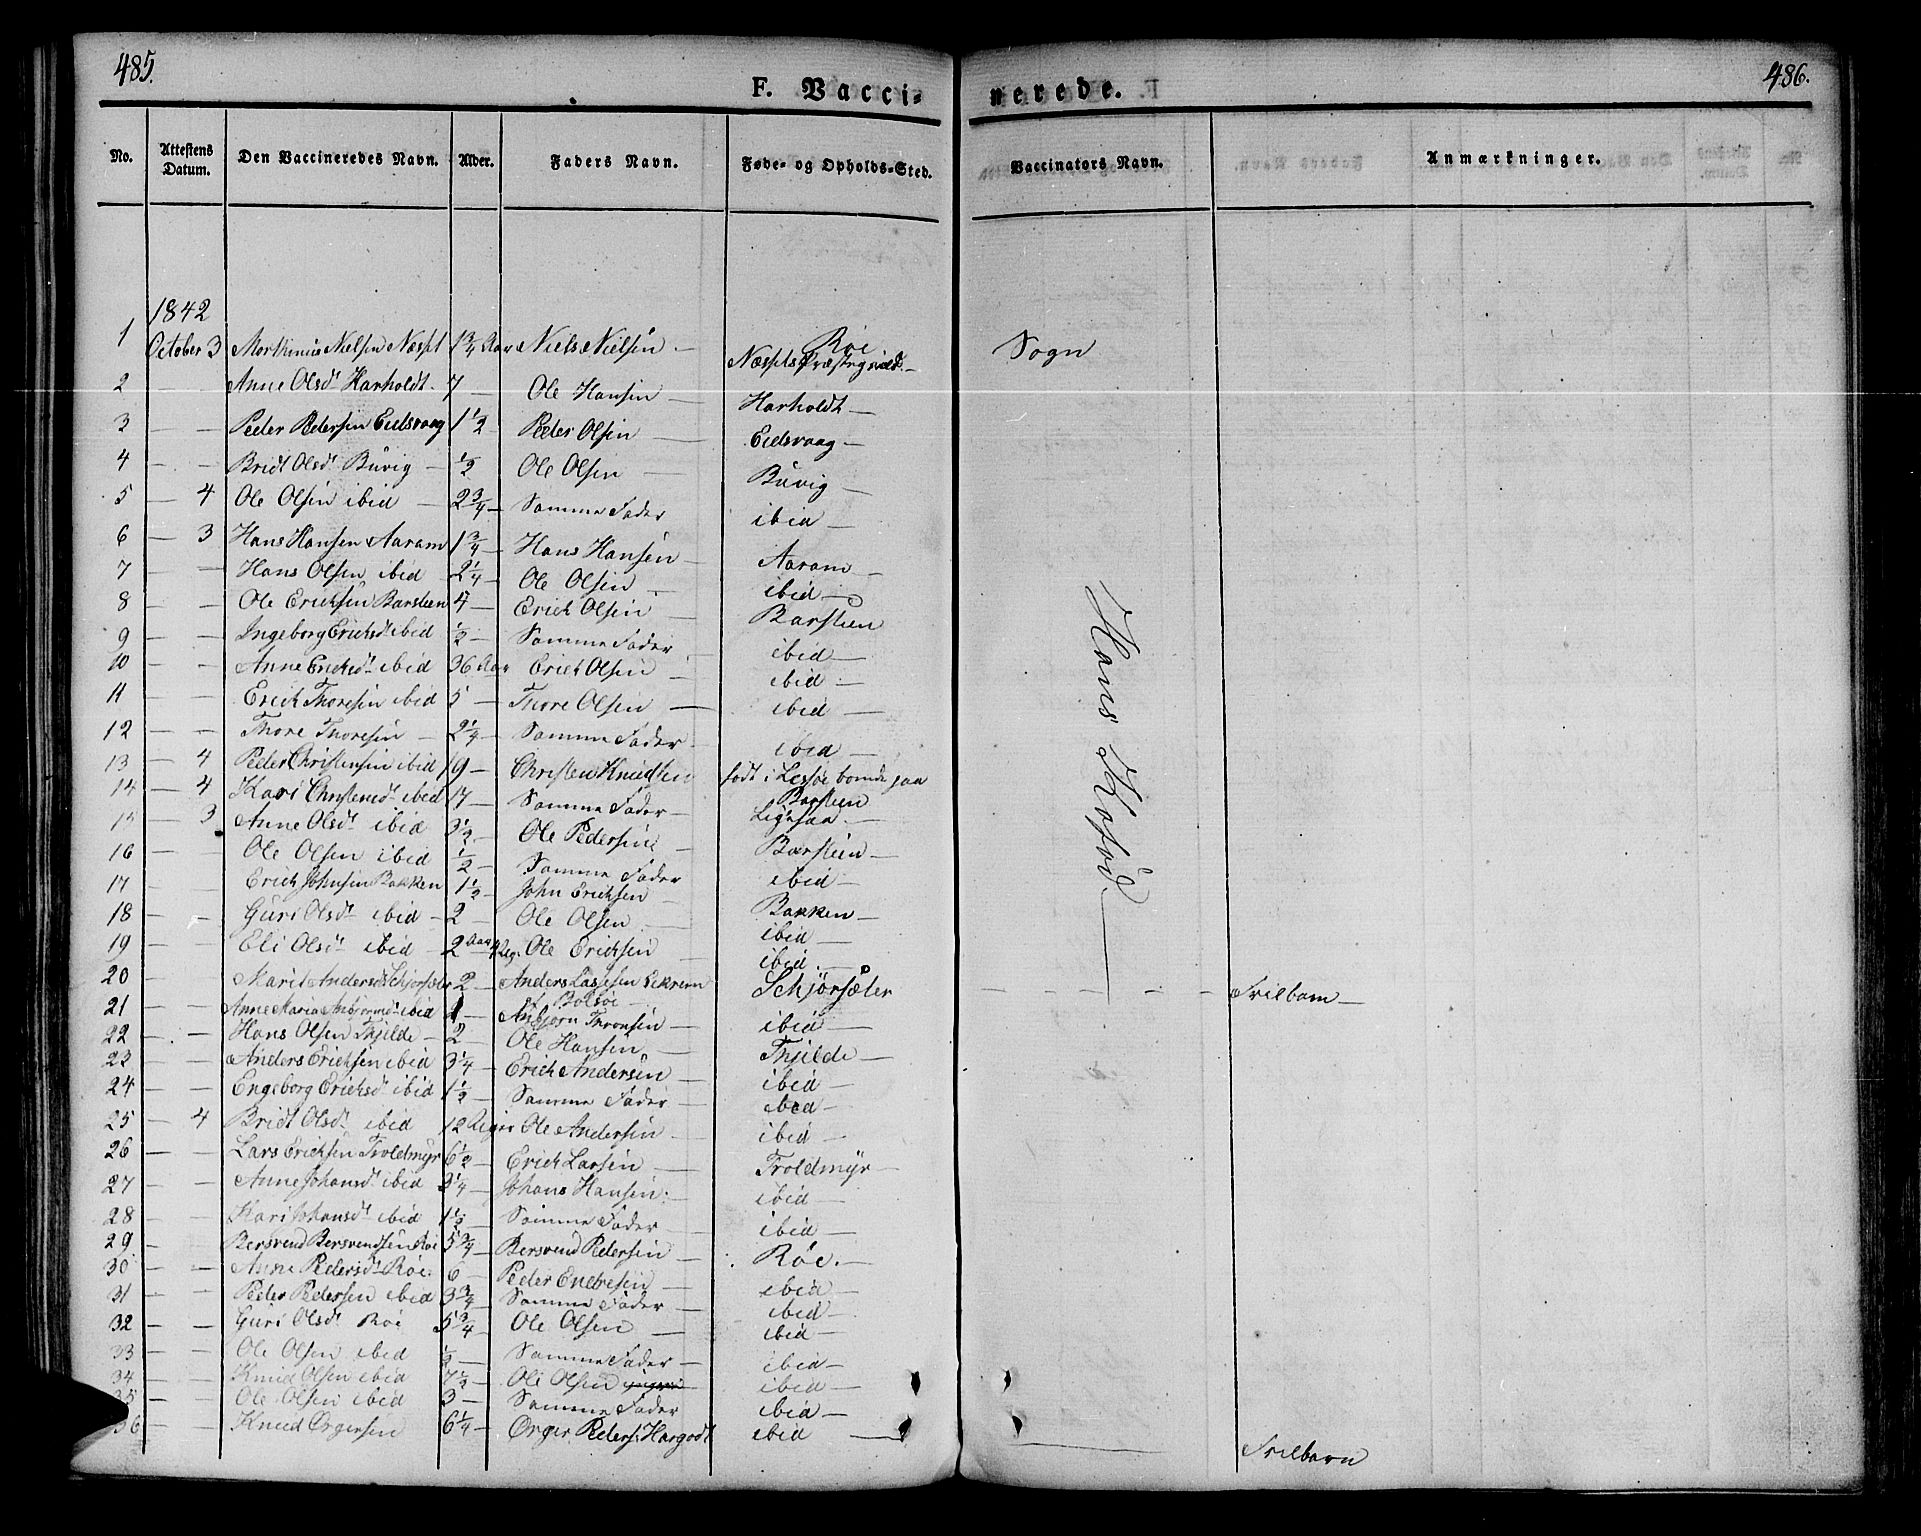 485.
F. Vacci-
nerede.
486.
No. Attestens Datum. Den Vaccineredes Navn. Alder. Faders Navn. Føde- og Opholds-Sted. Vaccinators Navn. Anmærkninger.
1842
Røe Sogn
1 October 3 Morthinus Nielsen Næsset 1 3/4 Aar Niels Nielsen — Næssets Præstegield. —
2 — — Anne Olsdt Harholdt. 7 — Ole Hansen — Harholdt —
3 — — Peder Pedersen Eidsvaag 1 1/2 Peder Olsen — Eidsvaag —
4 — — Bridt Olsdt Buvig — 1/2 Ole Olsen — Buvig —
5 — 4 Ole Olsen ibid — 2 3/4 — Samme Fader ibid —
6 — 3 Hans Hansen Aaram 1 3/4 — Hans Hansen — Aaram —
7 — — Hans Olsen ibid — 2 1/4 — Ole Olsen — ibid —
8 — — Ole Erichsen Barsteen 4 — Erich Olsen — Barstein
9 — — Ingeborg Erichsdt ibid 1/2 — Samme Fader ibid —
10 — — Anne Ericksdt ibid 36 Aar Erich Olsen ibid —
11 — — Erich Thoresen ibid 5 — Thore Olsen — ibid —
12 — — Thore Thoresen — 2 1/4 — Samme Fader — ibid —
13 — 4 Peder Christensen ibid 19 — Christen Knudsen født i Lesjøe boende paa Barstein
14 — 4 Kari Christensdt ibid 17 — Samme Fader — Ligesaa —
15 — 3 Anne Olsdt ibid 3 1/2 — Ole Pedersen — Barstein —
16 — — Ole Olsen ibid 1/2 — Samme Fader ibid —
17 — — Erich Johnsen Bakken 1 1/2 — John Erichsen — Bakken —
18 — — Guri Olsdt ibid — 2 — Ole Olsen — ibid —
19 — — Eli Olsdt ibid — 2 Aar Ole Erichsen — ibid —
20 — — Marit Andersdt Schjørsæter 2 — Anders Lassesen Eekrem Bolsøe — Schjørsæter — — — — Frilbarn —
21 — — Anne Maria Anbjørnsdt ibid 1 — Anbjørn Thronsen — ibid —
22 — — Hans Olsen Thjelde — 2 — Ole Hansen — Thjelde —
23 — — Anders Erichsen ibid 3 1/4 — Erich Andersen — ibid —
24 — — Engeborg Erichsdt ibid 1 1/2 — Samme Fader — ibid —
25 — 4 Bridt Olsdt ibid 12 Ole Andersen — ibid —
26 — — Lars Erichsen Troldmyr 6 1/2 — Erich Larsen — Troldmyr —
27 — — Anne Johansdt ibid 3 1/4 — Johans Hansen. — ibid —
28 — — Kari Johansdt ibid 1 1/2 — Samme Fader — ibid —
29 — Bersvend Bersvendsen Røe 5 3/4 — Bersvend Pedersen — Røe. —
30 — — Anne Pedersdt Røe. 6 — Peder Endresen — ibid —
31 — — Peder Pedersen ibid 3 3/4 — Samme Fader — ibid —
32 — — Guri Olsdt Røe 5 3/4 — Ole Olsen — ibid —
33 — — Ole Olsen ibid 1/2 — Samme Fader — ibid —
34 — — Knud Olsen ibid 7 1/2 — Ole Olsen ibid —
35 — — Ole Olsen ibid 3 — Samme Fader ibid —
36 — — Knud Ørgersen 6 1/4 — Ørger Peders: Hargodt ibid — Frilbarn
Hans Kofod —